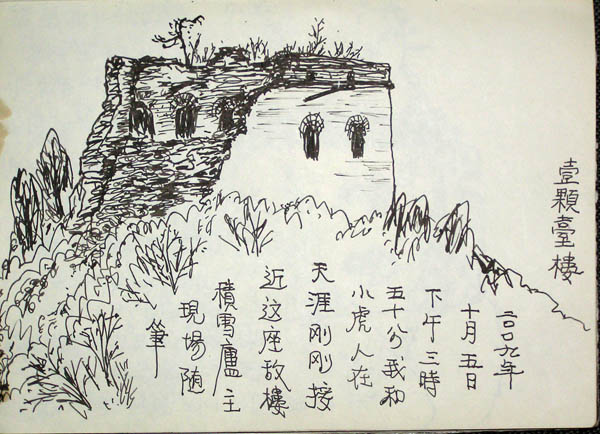 壹顆臺樓
二〇〇九年
十月五日
下午三時
五十分我和
小虎人在
天涯刚刚接
近这座敌樓
積雪廬主
現場随
筆